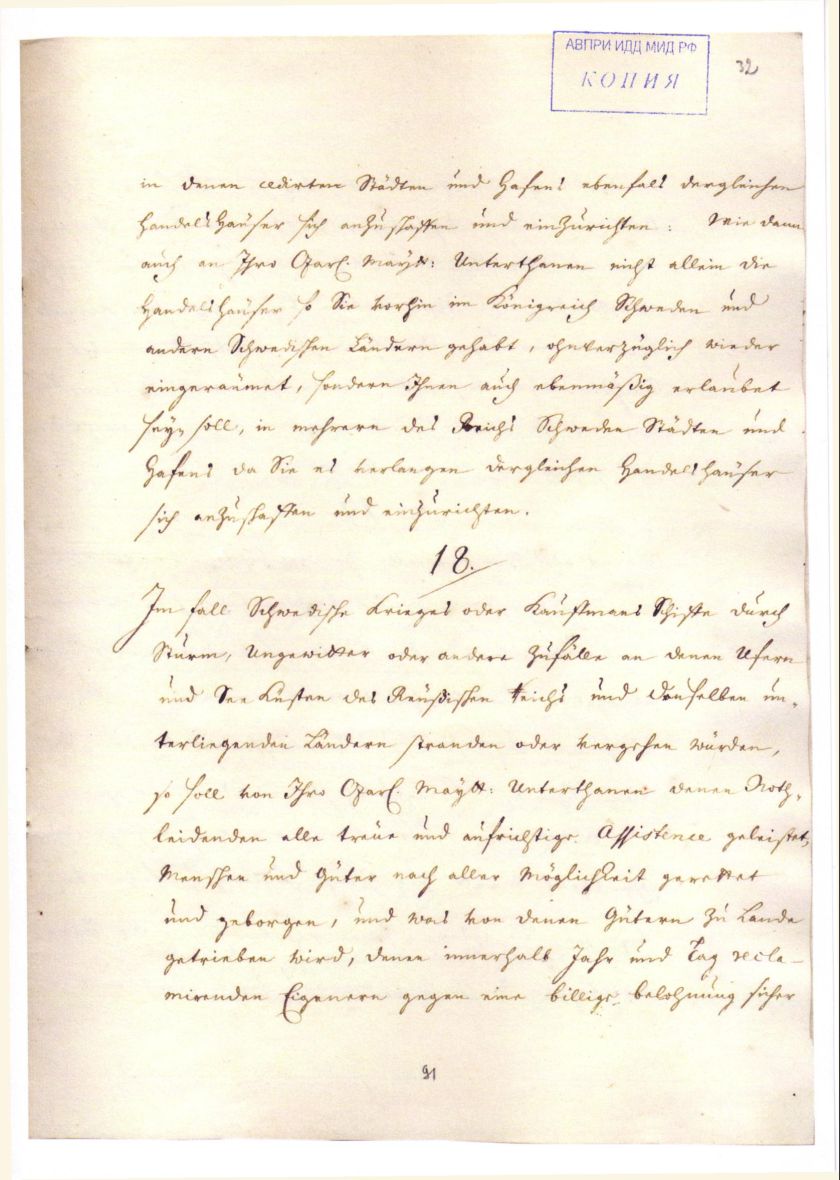 АВПРИ ИДД МИД РФ
КОПИЯ
32
in denen cedirten Städten und Hafens ebenfals dergleichen
Handels Häuser sich anzuschaffen und einzurichten: Wie dann
auch an Ihro Czarl. Maytt: Unterthanen nicht allein die
Handelshäuser so Sie vorhin im Königreich Schweden und
andern Schwedischen Ländern gehabt, ohnverzüglich wieder
eingeräumet, sondern Ihnen auch ebenmäßig erlaubet
seyn soll, in mehrern des Reichs Schweden Städten und
Hafens da Sie es verlangen dergleichen Handelshäuser
sich anzuschaffen und einzurichten.
18.
Im fall Schwedische Krieges oder Kauffmans Schiffe durch
Sturm, Ungewitter oder andere Zufälle an denen Ufern
und See Küsten des Reußischen Reichs und denselben un-
terliegenden Ländern stranden oder vergehen würden,
so soll von Ihro Czarl. Maytt: Unterthanen denen Noth-
leidenden alle treue und aufrichtige Assistence geleistet,
Menschen und Güter nach aller Möglichkeit gerettet
und geborgen, und was von denen Gütern zu Lande
getrieben wird, denen innerhalb Jahr und Tag recla-
mirenden Eigenern gegen eine billige belohnung sicher
91